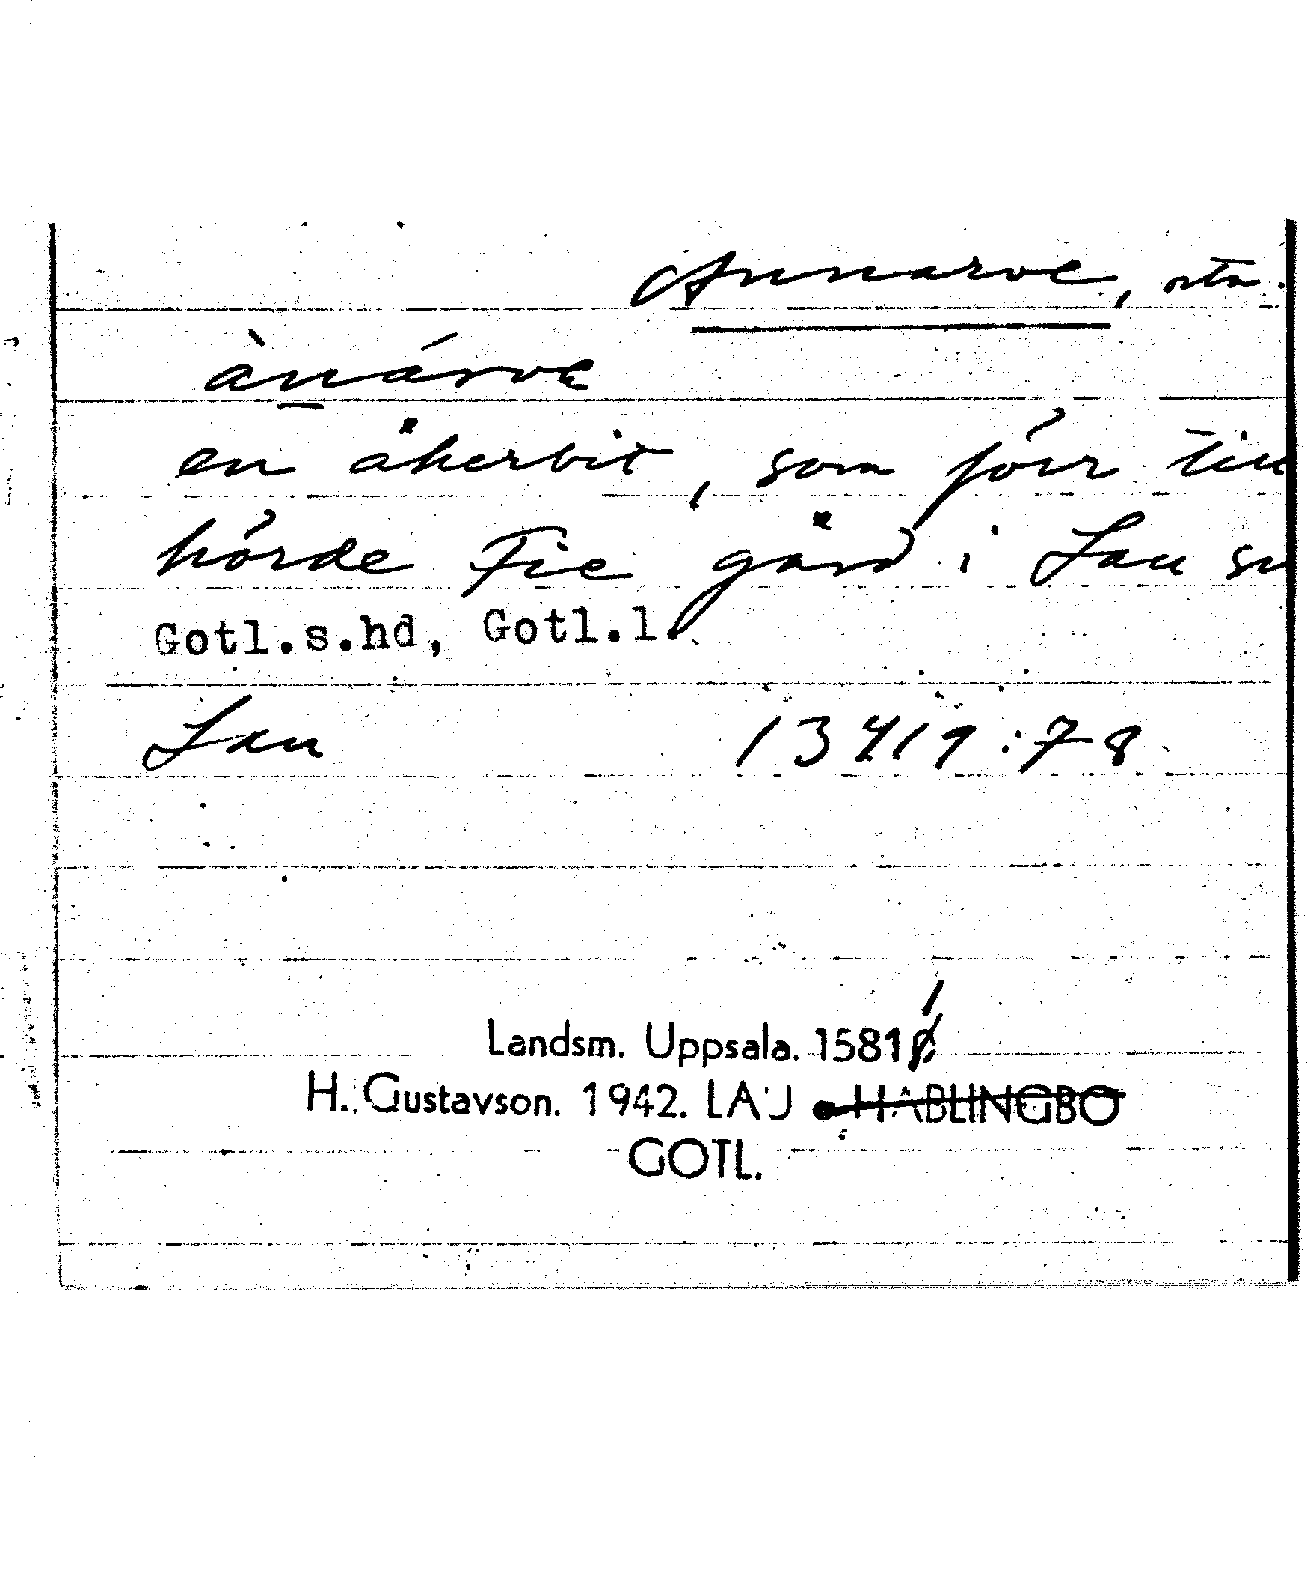 Annarve, utn.
ànárve
en åkerbit, som förr till
hörde Fie gård i Lau sn
Gotl.s.hd, Gotl.l.
Lau 13/4 19:78
Landsm. Uppsala. 1581
H. Gustavson. 1942. LAU HABLINGBO
GOTL.